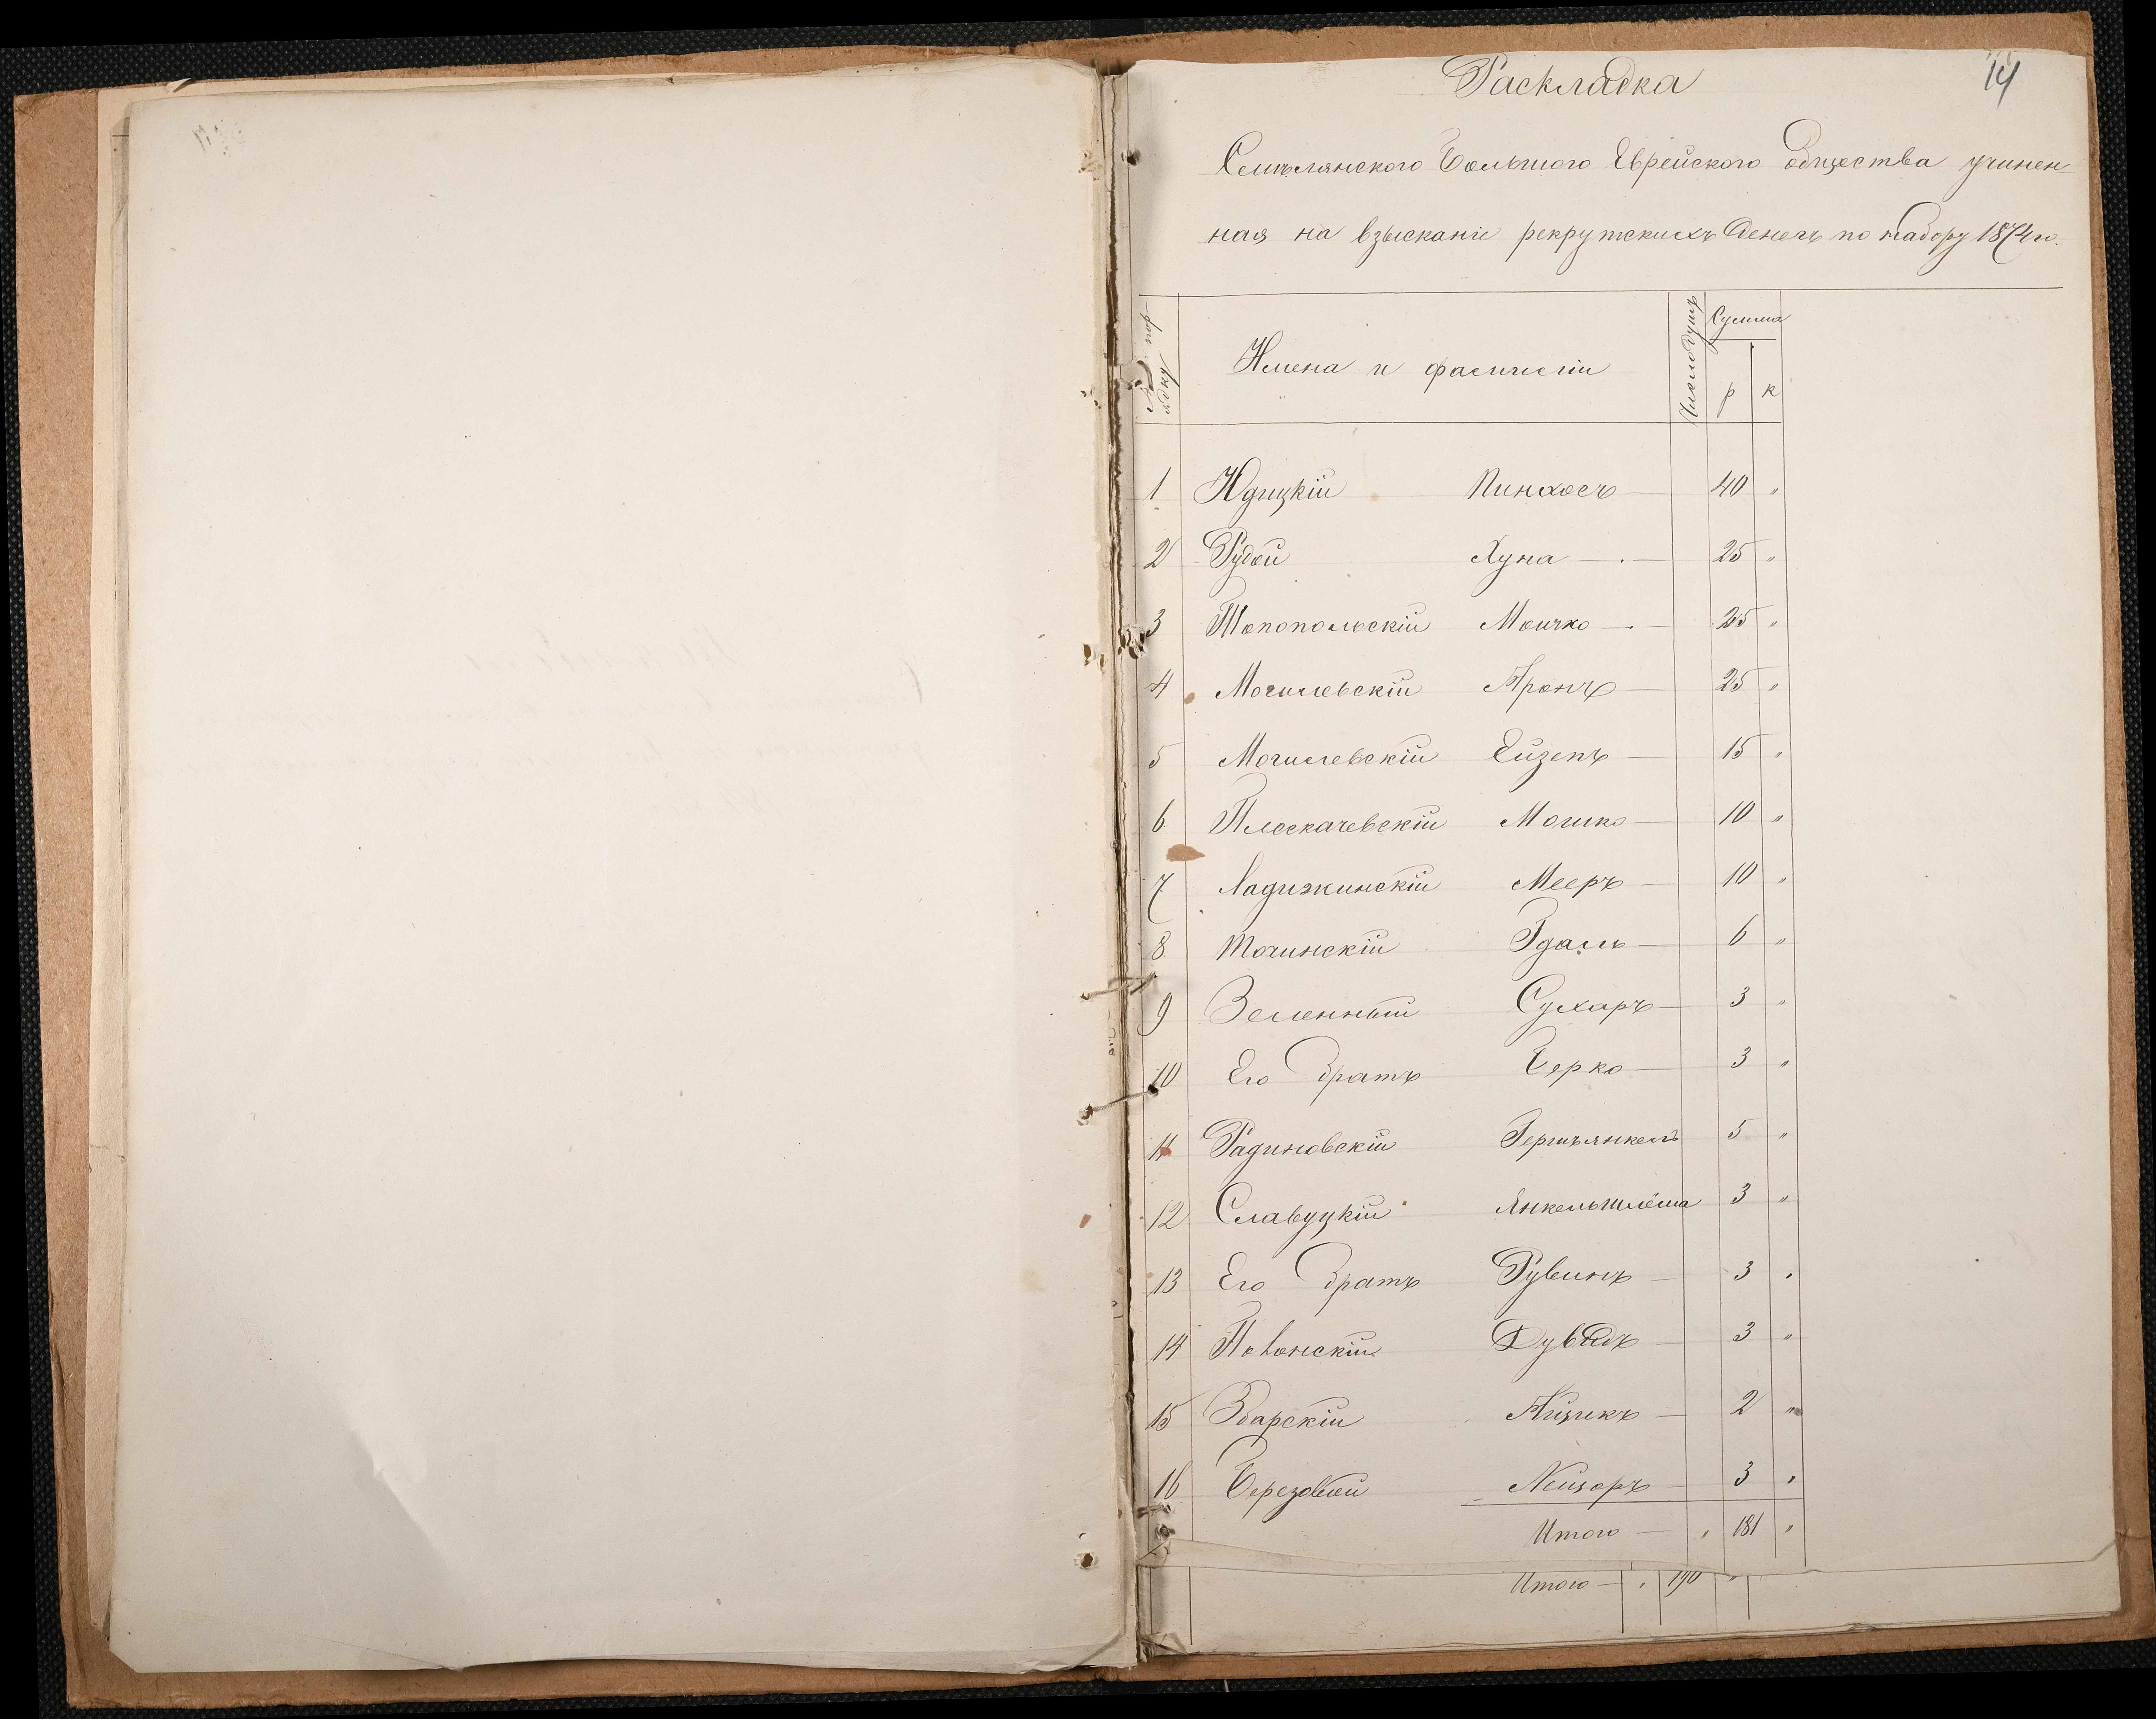 14
Раскладка
Смѣлянского Большого Еврейского общества учинен-
ная на взысканіе рекрутскихъ денегъ по набору 1874 го.
№ по пор-
ядку Имена и фамиліи Число душъ Сумма
р к
1 Юдицкій Пинхосъ — 40 "
2 Рудой Хуна — . — 25 "
3 Топопольскій Мошко — . — 25 "
4 Могилевскій Аронъ — 25 "
5 Могилевскій Ейзепъ — 15 "
6 Плескачевскій Мошко — 10 "
7 Ладижинскій Мееръ — 10 "
8 Точинскій Эдаль — 6 "
9 Зеленный Сухаръ — 3 "
10 Его братъ Берко — 3 "
11 Радиновскій Гершъянкель 5 "
12 Славуцкій Янкельшлёма 3 "
13 Его братъ Рувинъ — 3 "
14 Дувидъ — 3 "
15 Збарскій Айзикъ — 2 "
16 Березовой Лейзоръ — 3 "
Итого — " 181 "
Итого — " 190 "